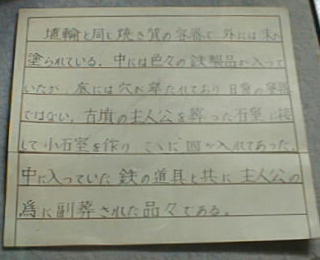 埴輪と同じ焼き質の容器で、外には朱が
塗られている。中には色々の鉄製品が入って
いたが、底には穴が穿たれており日常の容器
ではない。古墳の主人公を葬った石室に接
して小石室を作り、ここに 個が入れてあった。
中に入っていた鉄の道具と共に主人公の
為に副葬された品々である。